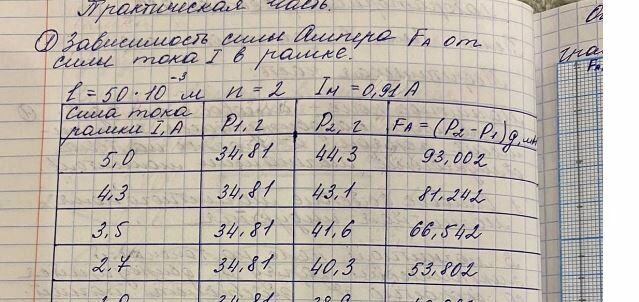 Практическая часть.
① Зависимость силы Ампера Fₐ от
силы тока I в рамке.
l = 50·10⁻³ м n = 2 Iм = 0,91 А
Сила тока рамки I, А P₁, г P₂, г Fₐ = (P₂ - P₁)g, мН
5,0 34,81 44,3 93,002
4,3 34,81 43,1 81,242
3,5 34,81 41,6 66,542
2,7 34,81 40,3 53,802